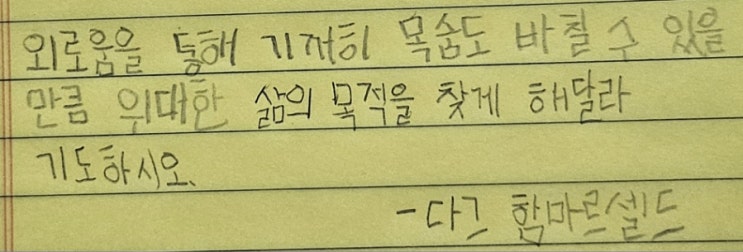 외로움을 통해 기꺼히 목숨도 바칠 수 있을
만큼 위대한 삶의 목적을 찾게 해달라
기도하시오.
- 다그 함마르셸드